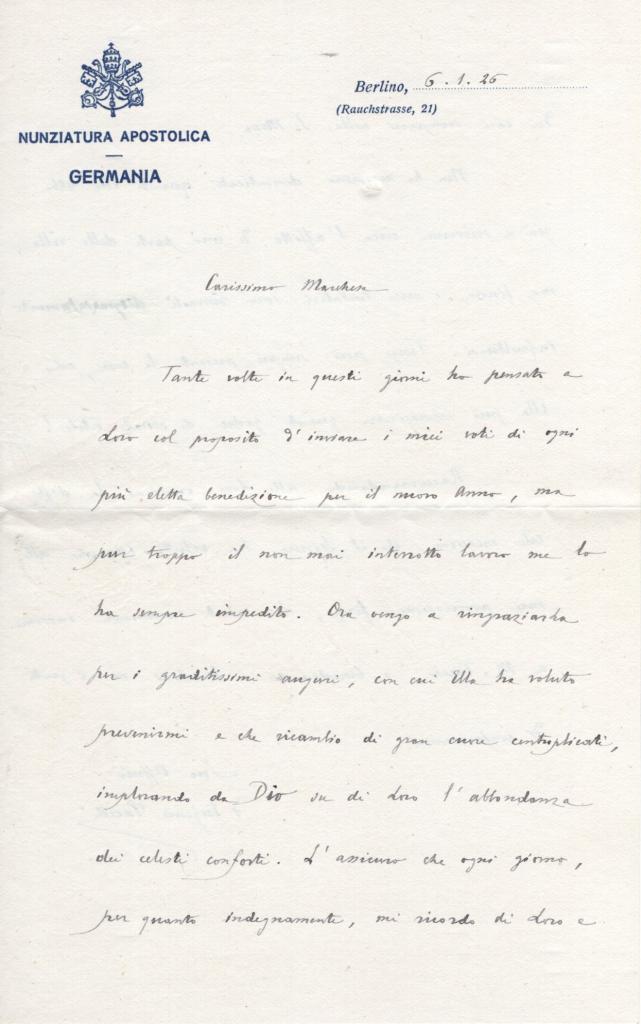 Berlino, 6.1.26
(Rauchstrasse, 21)
NUNZIATURA APOSTOLICA
GERMANIA
Carissimo Marchese
Tante volte in questi giorni ho pensato a
Loro col proposito d'inviare i miei voti di ogni
più eletta benedizione per il nuovo Anno, ma
pur troppo il non mai interrotto lavoro me lo
ha sempre impedito. Ora vengo a ringraziarLa
per i graditissimi auguri, con cui Ella ha voluto
prevenirmi e che ricambio di gran cuore centuplicati,
implorando da Dio su di Loro l'abbondanza
dei celesti conforti. L'assicuro che ogni giorno,
per quanto indegnamente, mi ricordo di Loro e